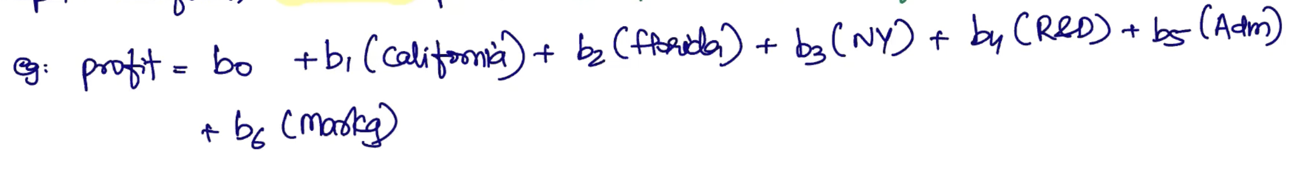 eg: profit = b0 + b1 (California) + b2 (Florida) + b3 (NY) + b4 (R&D) + b5 (Adm)
+ b6 (Markg)